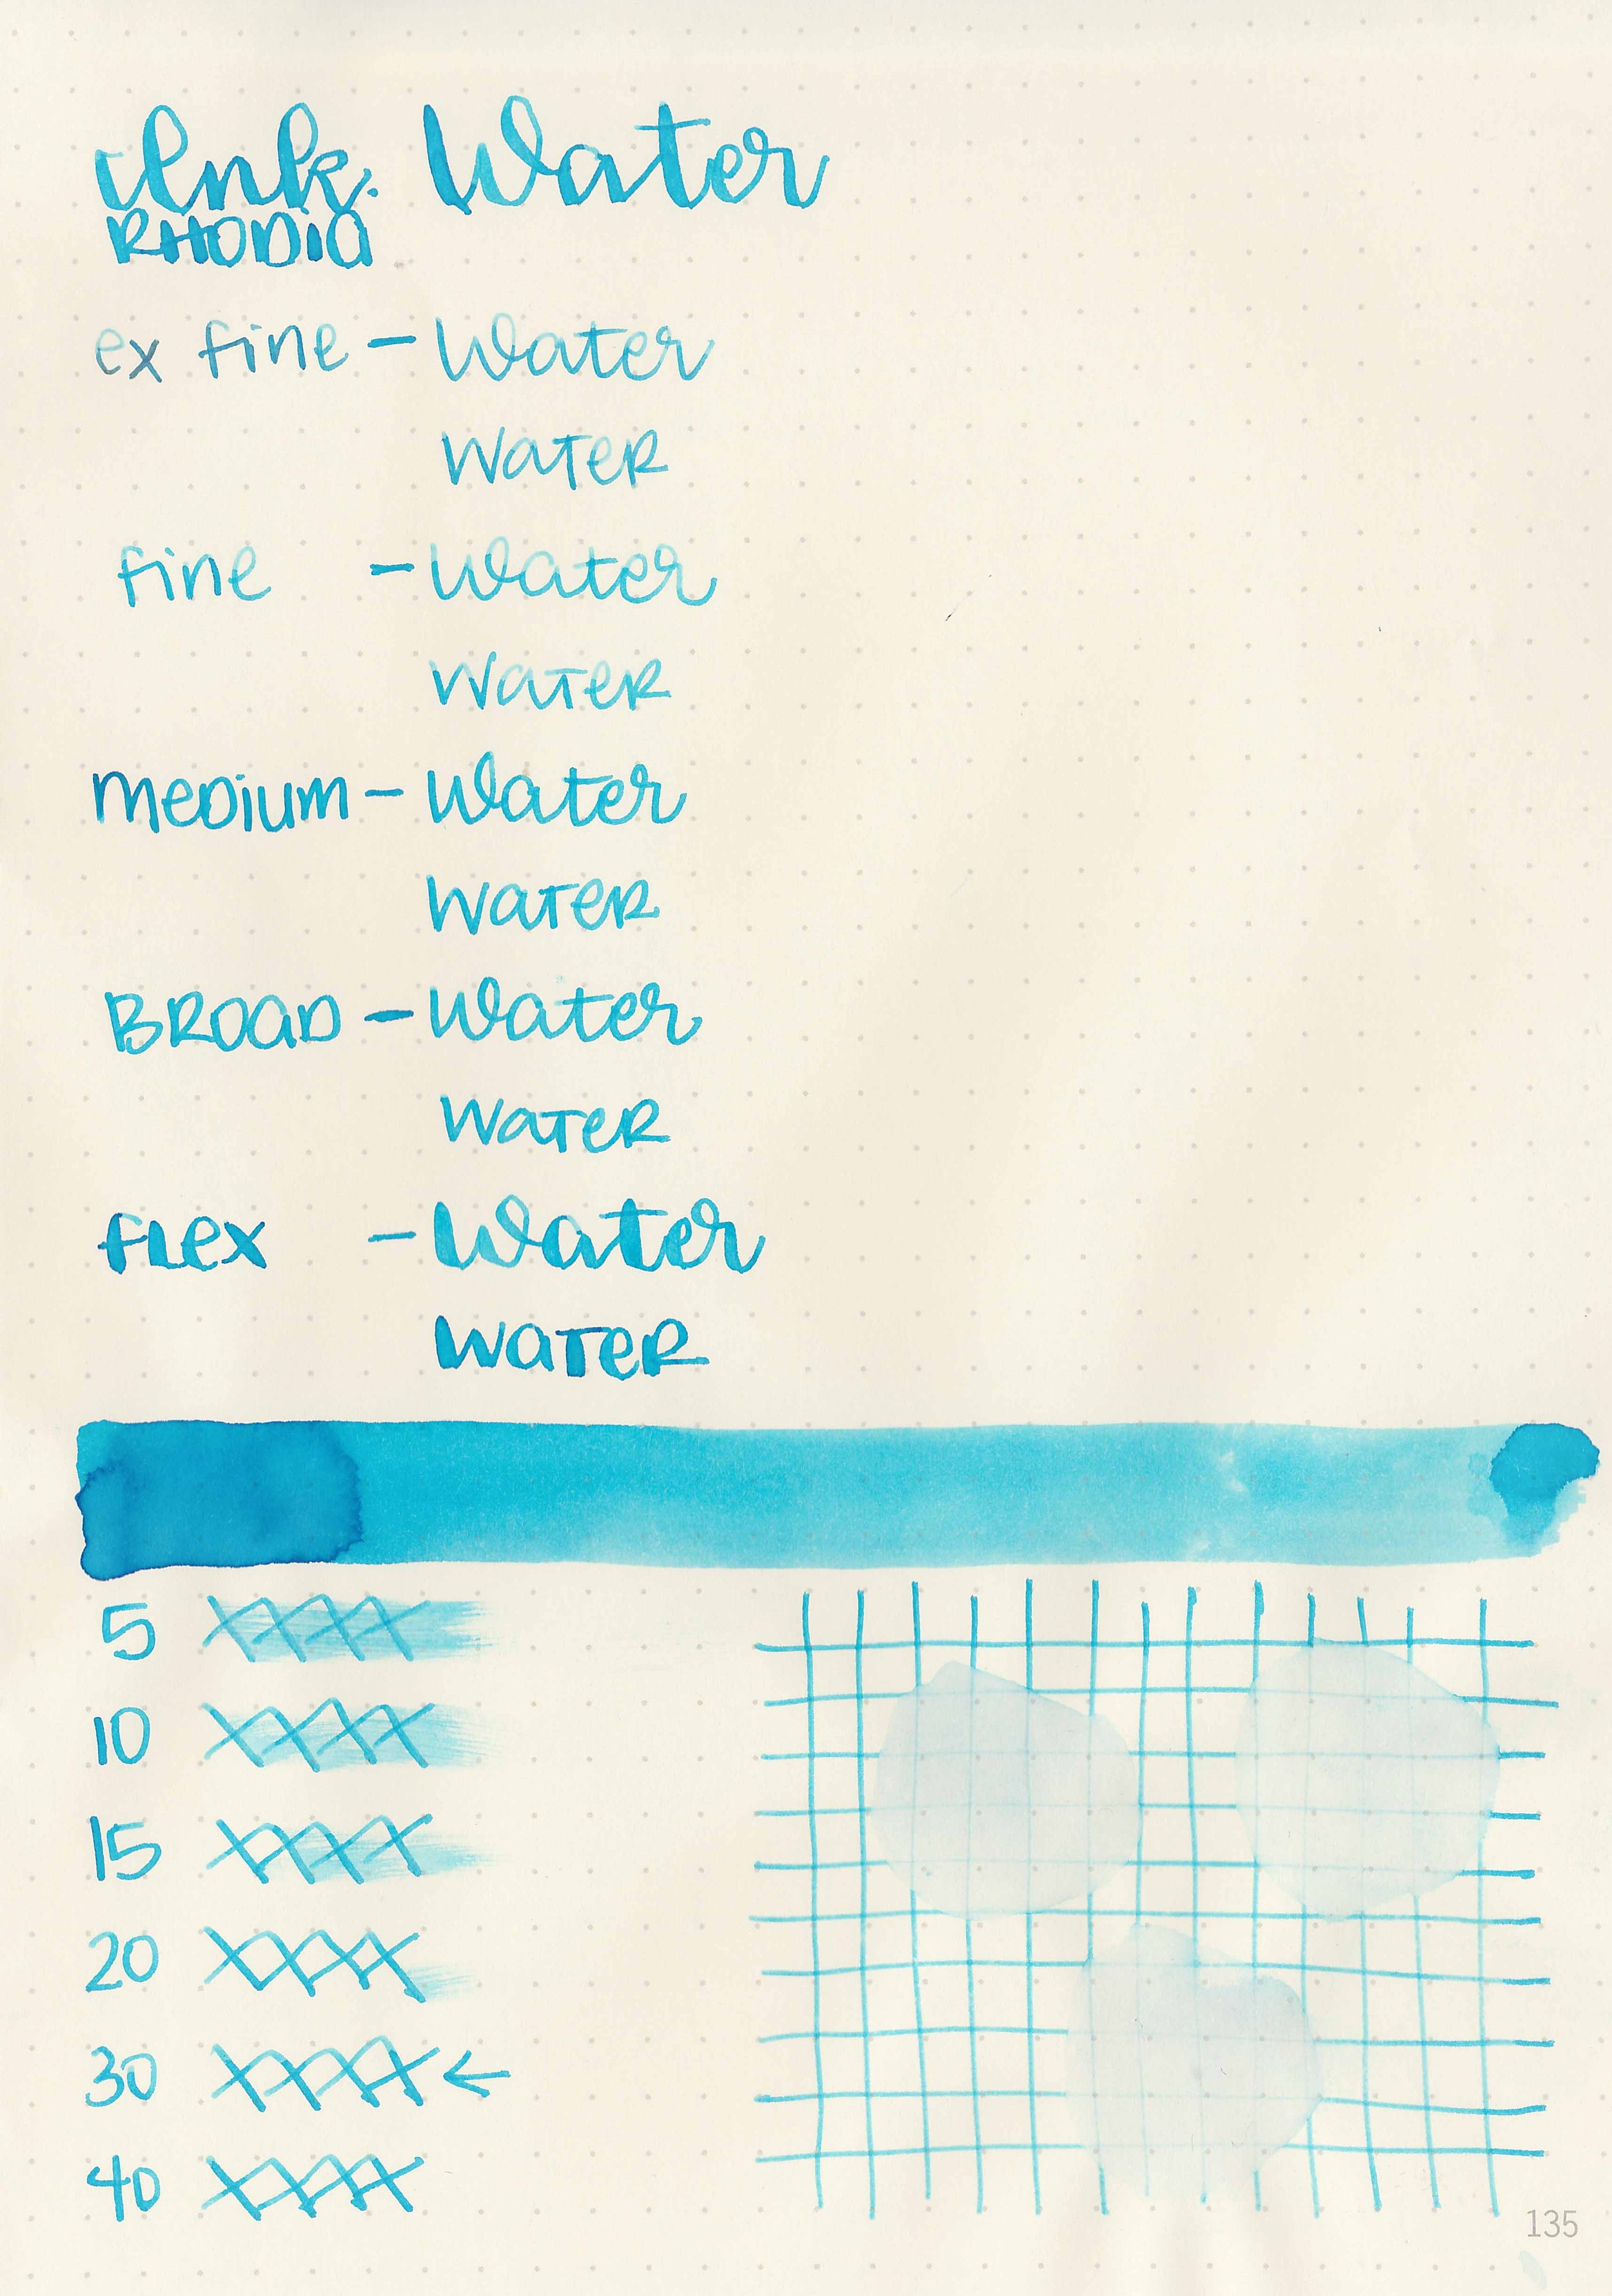 Ink: Water
RHODIA
ex fine - Water
WaTeR
fine - Water
WaTeR
meDium - Water
WaTeR
BROAD - Water
WaTeR
flex - Water
WaTeR
5
10
15
20
30 ←
40
135